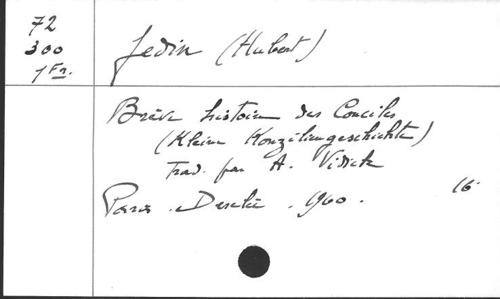 72
300
1 Fn.
Jedin (Hubert)
Brève histoire des Conciles
(Kleine Konziliengeschichte)
Trad. par A.
Paris . Desclée . 1960 .
16